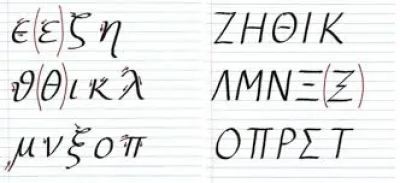 ϵ(ε)ζη
ϑ(θ)ικλ
μνξοπ
ΖΗΘΙΚ
ΛΜΝΞ(Ξ)
ΟΠΡΣΤ